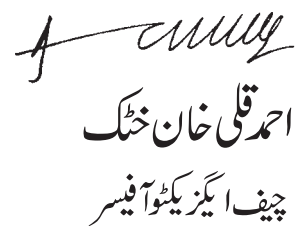 احمد قلی خان خٹک
چیف ایگزیکٹو آفیسر